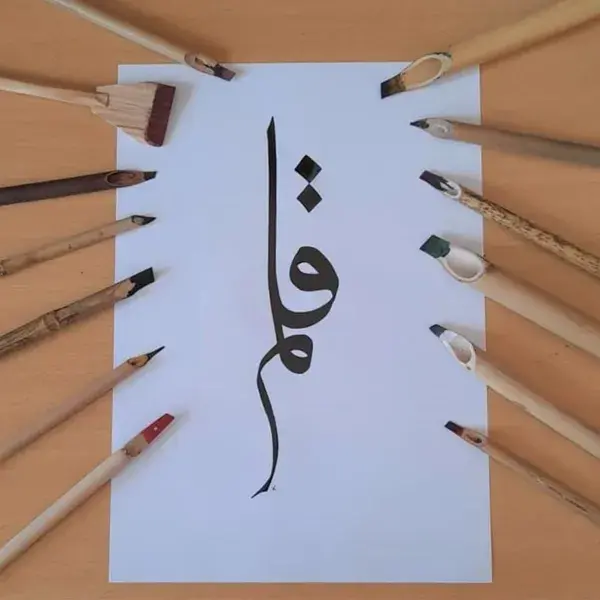 قلم